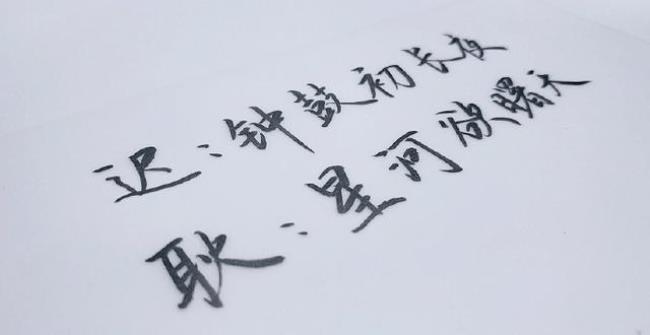 迟:钟鼓初长夜
耿:星河欲曙天